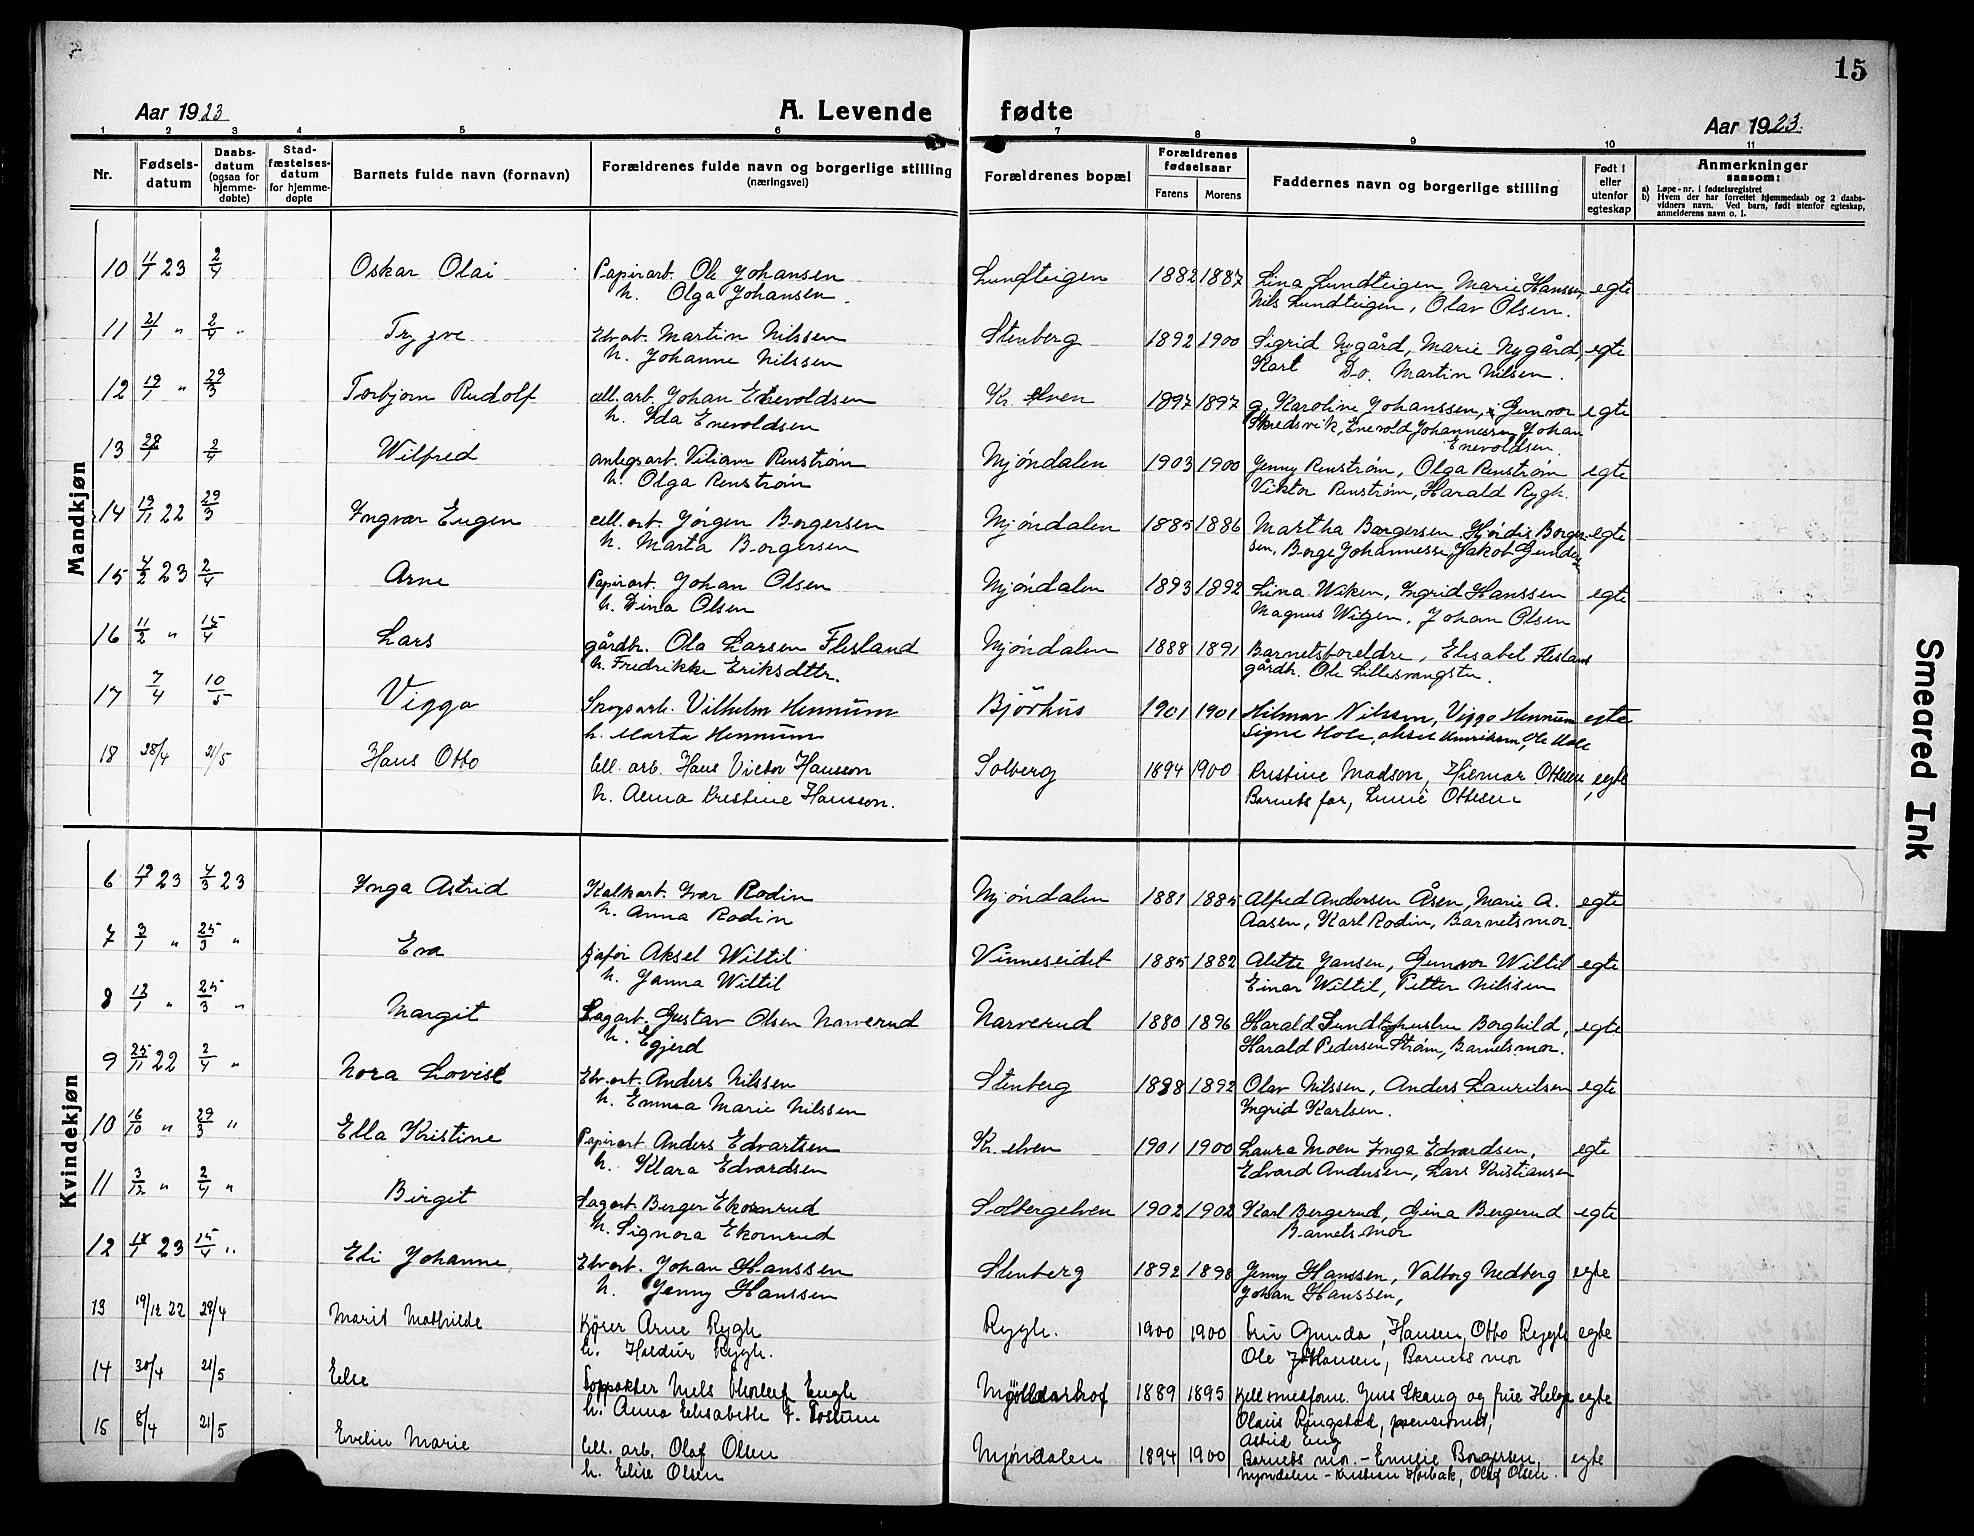 15
Aar 1923
A. Levende fødte
Aar 1923.
1 2 3 4 5 6 7 8 9 10 11
Nr.
Fødsels-
datum
Daabs-
datum
(ogsaa for
hjemme-
døbte)
Stad-
fæstelses-
datum
for hjemme-
døpte
Barnets fulde navn (fornavn)
Forældrenes fulde navn og borgerlige stilling
(næringsvei)
Forældrenes bopæl
Forældrenes
fødselsaar
Farens Morens
Faddernes navn og borgerlige stilling
Født i
eller
utenfor
egteskap
Anmerkninger
saasom:
a) Løpe-nr. i fødselsregistret
b) Hvem der har forrettet hjemmedaab og 2 daabs-
vidners navn. Ved barn, født utenfor egteskap,
anmelderens navn o. l.
Mandkjøn
10 11/1 23 2/4 Oskar Olai Papirarb. Ole Johansen Lundteigen 1882 1887 Lina Lundteigen Marie Hanssen egte
h. Olga Johansen. Nils Lundteigen, Olav Olsen.
11 21/1 " 2/4 " Trygve Elvarb. Martin Nilssen Stenberg 1892 1900 Sigrid Nygård, Marie Nygård egte
h. Johanne Nilssen Karl Do. Martin Nilsen.
12 19/1 " 29/3 Torbjørn Rudolf cell. arb. Johan Enevoldsen Kr. elven 1897 1897 g. Karoline Johanssen, Gunvor egte
h. Ida Enevoldsen Skredsvik, Enevold Johannessen Johan
Enevoldsen.
13 28/1 2/4 Wilfred anlegsarb. Viliam Renstrøm Mjøndalen 1903 1900 Jenny Renstrøm, Olga Renstrøm egte
h. Olga Renstrøm Viktor Renstrøm, Harald Rygh.
14 19/11 22 29/3 Yngvar Eugen cell. arb. Jørgen Borgersen Mjøndalen 1885 1886 Martha Borgersen Hjørdis Borger- egte
h. Marta Borgersen sen, Borge Johannessen Jakob Gunder
15 4/2 23 2/4 Arne Papirarb. Johan Olsen Mjøndalen 1893 1892 Lina Wiken, Ingrid Hanssen egte
h. Dina Olsen Magnus Wigen, Johan Olsen
16 11/2 " 15/4 Lars gårdbr. Ola Larsen Flesland Mjøndalen 1888 1891 Barnetsforeldre, Elisabet Flesland
h. Fredrikke Eriksdttr. gårdbr. Ole Lillesvangstu.
17 7/4 10/5 Viggo Skogsarb. Vilhelm Hennum Bjørhus 1901 1901 Hilmar Nilsen, Viggo Hennum egte
h. Marta Hennum Signe Hole, aksel Henriksen, Ole Hole
18 28/4 21/5 Hans Otto Cell. arb. Hans Victor Hansson Solberg 1894 1900 Kristine Madson, Hilmar Ottesen, egte
h. Anna Kristine Hansson. Barnets far, Ottesen
Kvindekjøn
6 19/1 23 4/3 23 Inga Astrid Kalkarb. Ivar Rodin Mjøndalen 1881 1885 Alfred Andersen Åsen, Marie A. egte
h. Anna Rodin Aasen, Karl Rodin, Barnets mor.
7 3/1 " 25/3 " Eva Aksel Wiltil Vinneseidet 1885 1882 Alette Jansen, Gunvor Wiltil egte
h. Janna Wiltil Einar Wiltil, Petter Nilssen
8 12/1 " 25/3 " Margit Sagarb. Gustav Olsen Narverud Narverud 1880 1896 Harald Borghild, egte
h. Egjerd Harald Pedersen Strøm, Barnets mor.
9 25/11 22 2/4 " Nora Lovise Elv. arb. Anders Nilssen Stenberg 1888 1892 Olav Nilssen, Anders Lauritsen egte
h. Emma Marie Nilssen Ingrid Karlsen.
10 16/10 " 29/3 " Ella Kristine Papirarb. Anders Edvartsen Kr. elven 1901 1900 Laura Moen Inga Edvardsen, egte
h. Klara Edvardsen Edvard Andersen, Lars Kristiansen
11 3/12 " 2/4 " Birgit Sagarb. Berger Ekornrud Solbergelven 1902 1902 Karl Bergerud, Gina Bergerud egte
h. Signora Ekornrud Barnets mor
12 18/1 23 15/4 " Eli Johanne Elvarb. Johan Hanssen Stenberg 1892 1898 Jenny Hanssen, Valborg Nedberg egte
h. Jenny Hanssen Johan Hanssen,
13 19/12 22 29/4 Marit Mathilde Kjører Arne Rygh Rygh. 1900 1900 Fru Gunda Hansen, Otto Rygh egte
h. Rygh. Ole Johansen, Barnets mor
14 30/4 21/5 Else Nils Thorleif Engh 1889 1895 Jens Skaug og frue Helga egte
h. Anna Elisabeth f. Olaus Ringstad, pensionist,
Astrid Eng
15 8/4 21/5 Evelin Marie Cell. arb. Olaf Olsen Mjøndalen 1894 1900 Barnets mor. - Emilie Borgersen, egte
h. Elise Olsen Mjøndalen - Kristian Hoibak, Olaf Olsen.
Smeared Ink